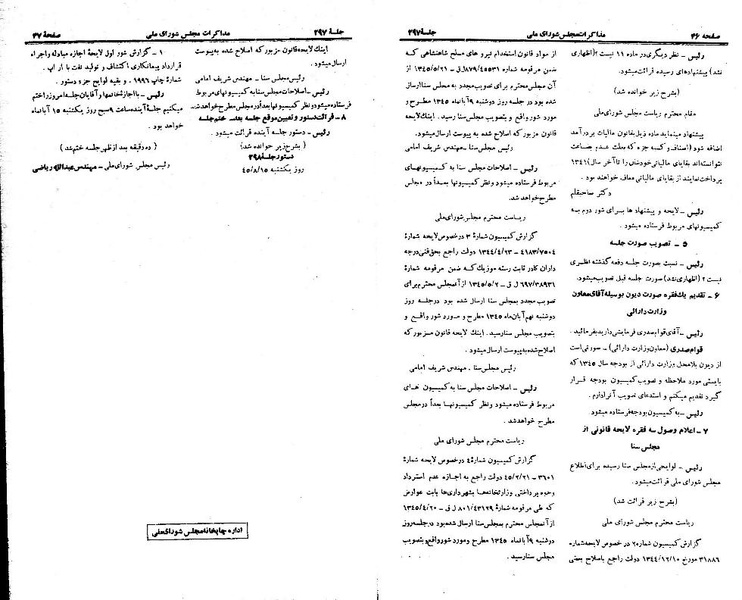 صفحه ۳۶ مذاکرات مجلس شورای ملی جلسه ۲۹۷
رئیس ـ نظر دیگری در ماده ۱۱ نیست؟ (اظهاری
نشد) پیشنهادهای رسیده قرائت میشود.
(بشرح زیر خوانده شد)
مقام محترم ریاست مجلس شورای ملی
پیشنهاد مینماید ماده زیل بقانون مالیات بر درآمد
اضافه شود (اصناف و کسبه جزء که بعلت عدم بضاعت
نتوانسته‌اند بقایای مالیاتی خودشان را تا آخر سال ۱۳۴۱
پرداخت نمایند از بقایای مالیاتی معاف خواهند بود.
دکتر صاحبقلم
رئیس ـ لایحه و پیشنهاد ها برای شور دوم به
کمیسیونهای مربوط فرستاده میشود.
۵ ـ تصویب صورت جلسه
رئیس ـ نسبت بصورت جلسه دفعه گذشته نظری
نیست؟ (اظهاری نشد) صورت جلسه قبل تصویب میشود.
۶ ـ تقدیم یک فقره صورت دیون بوسیله آقای معاون
وزارت دارائی
رئیس ـ آقای قوام صدری فرمایشی دارید بفرمائید.
قوام صدری (معاون وزارت دارائی) ـ صورتی است
از دیون بلامحل وزارت دارائی از بودجه سال ۱۳۴۵ که
بایستی مورد ملاحظه و تصویب کمیسیون بودجه قرار
گیرد تقدیم میکنم و استدعای تصویب آنرا دارم.
رئیس ـ به کمیسیون بودجه فرستاده میشود
۷ ـ اعلام وصول سه فقره لایحه قانونی از
مجلس سنا
رئیس ـ لوایحی از مجلس سنا رسیده برای اطلاع
مجلس شورای ملی قرائت میشود.
(بشرح زیر قرائت شد)
ریاست محترم مجلس شورای ملی
گزارش کمیسیون شماره ۲ در خصوص لایحه شماره
۳۱۸۸۶ مورخ ۱۳۴۴/۱۲/۱۰ دولت راجع باصلاح بعضی
از مواد قانون استخدام نیروهای مسلح شاهنشاهی که
ضمن مرقومه شماره ۸۷۹/۴۵۵۳۱ ل ق ـ ۱۳۴۵/۵/۲۱ از
آن مجلس محترم برای تصویب مجدد به مجلس سنا ارسال
شده بود در جلسه روز دوشنبه ۹ آبانماه ۱۳۴۵ مطرح و
مورد شور واقع و بتصویب مجلس سنا رسید. اینک لایحه
قانون مزبور که اصلاح شده به پیوست ارسال میشود.
رئیس مجلس سنا ـ مهندس شریف امامی
رئیس ـ اصلاحات مجلس سنا به کمیسیونهای
مربوط فرستاده میشود و نظر کمیسیونها بعداً در مجلس
مطرح خواهد شد.
ریاست محترم مجلس شورای ملی
گزارش کمیسیون شماره ۳ در خصوص لایحه شماره
۴۱۸۳/۷۵۰۴ ـ ۱۳۴۴/۴/۲۳ دولت راجع بحق فنی درجه
داران کادر ثابت رسته موزیک که ضمن مرقومه شماره
۶۹۷/۳۸۹۳۱ ل ق ـ ۱۳۴۵/۵/۲ از آنمجلس محترم برای
تصویب مجدد بمجلس سنا ارسال شده بود در جلسه روز
دوشنبه نهم آبان ماه ۱۳۴۵ مطرح و مورد شور واقع و
بتصویب مجلس سنا رسید. اینک لایحه قانون مزبور که
اصلاح شده به پیوست ارسال میشود.
رئیس مجلس سنا ـ مهندس شریف امامی
رئیس ـ اصلاحات مجلس سنا به کمیسیون های
مربوط فرستاده میشود و نظر کمیسیونها بعداً در مجلس
مطرح خواهد شد.
ریاست محترم مجلس شورای ملی
گزارش کمیسیون شماره ۴ در خصوص لایحه شماره
۳۶۰۱ ـ ۴۵/۲/۲۱ دولت راجع به اجازه عدم استرداد
وجوه پرداختی وزارتخانه‌ها بشهرداریها بابت عوارض
که طی مرقومه شماره ۸۰۱/۴۳۱۲۹ ل ق ـ ۱۳۴۵/۴/۲۰
از آن مجلس محترم بمجلس سنا ارسال شده بود در جلسه روز
دوشنبه ۹ آبانماه ۱۳۴۵ مطرح و مورد شور واقع و بتصویب
مجلس سنا رسید.
جلسه ۲۹۷ مذاکرات مجلس شورای ملی صفحه ۳۷
اینک لایحه قانون مزبور که اصلاح شده به پیوست
ارسال میشود.
رئیس مجلس سنا ـ مهندس شریف امامی
رئیس ـ اصلاحات مجلس سنا به کمیسیونهای مربوط
فرستاده میشود و نظر کمیسیونها بعداً در مجلس مطرح خواهد شد.
۸ ـ قرائت دستور و تعیین موقع جلسه بعد ـ ختم جلسه
رئیس ـ دستور جلسه آینده قرائت میشود.
(بشرح زیر خوانده شد)
دستور جلسه ۲۹۸
روز یکشنبه ۴۵/۸/۱۵
۱ ـ گزارش شور اول لایحه اجازه مبادله و اجراء
قرارداد پیمانکاری اکتشاف و تولید نفت با ار آپ.
شماره چاپ ۱۹۹۶ و بقیه لوایح جزء دستور.
رئیس ـ با اجازه خانمها و آقایان جلسه امروز را ختم
میکنیم جلسه آینده ساعت ۹ صبح روز یکشنبه ۱۵ آبانماه
خواهد بود.
(ده دقیقه بعد از ظهر جلسه ختم شد)
رئیس مجلس شورای ملی ـ مهندس عبدالله ریاضی
اداره چاپخانه مجلس شورای ملی